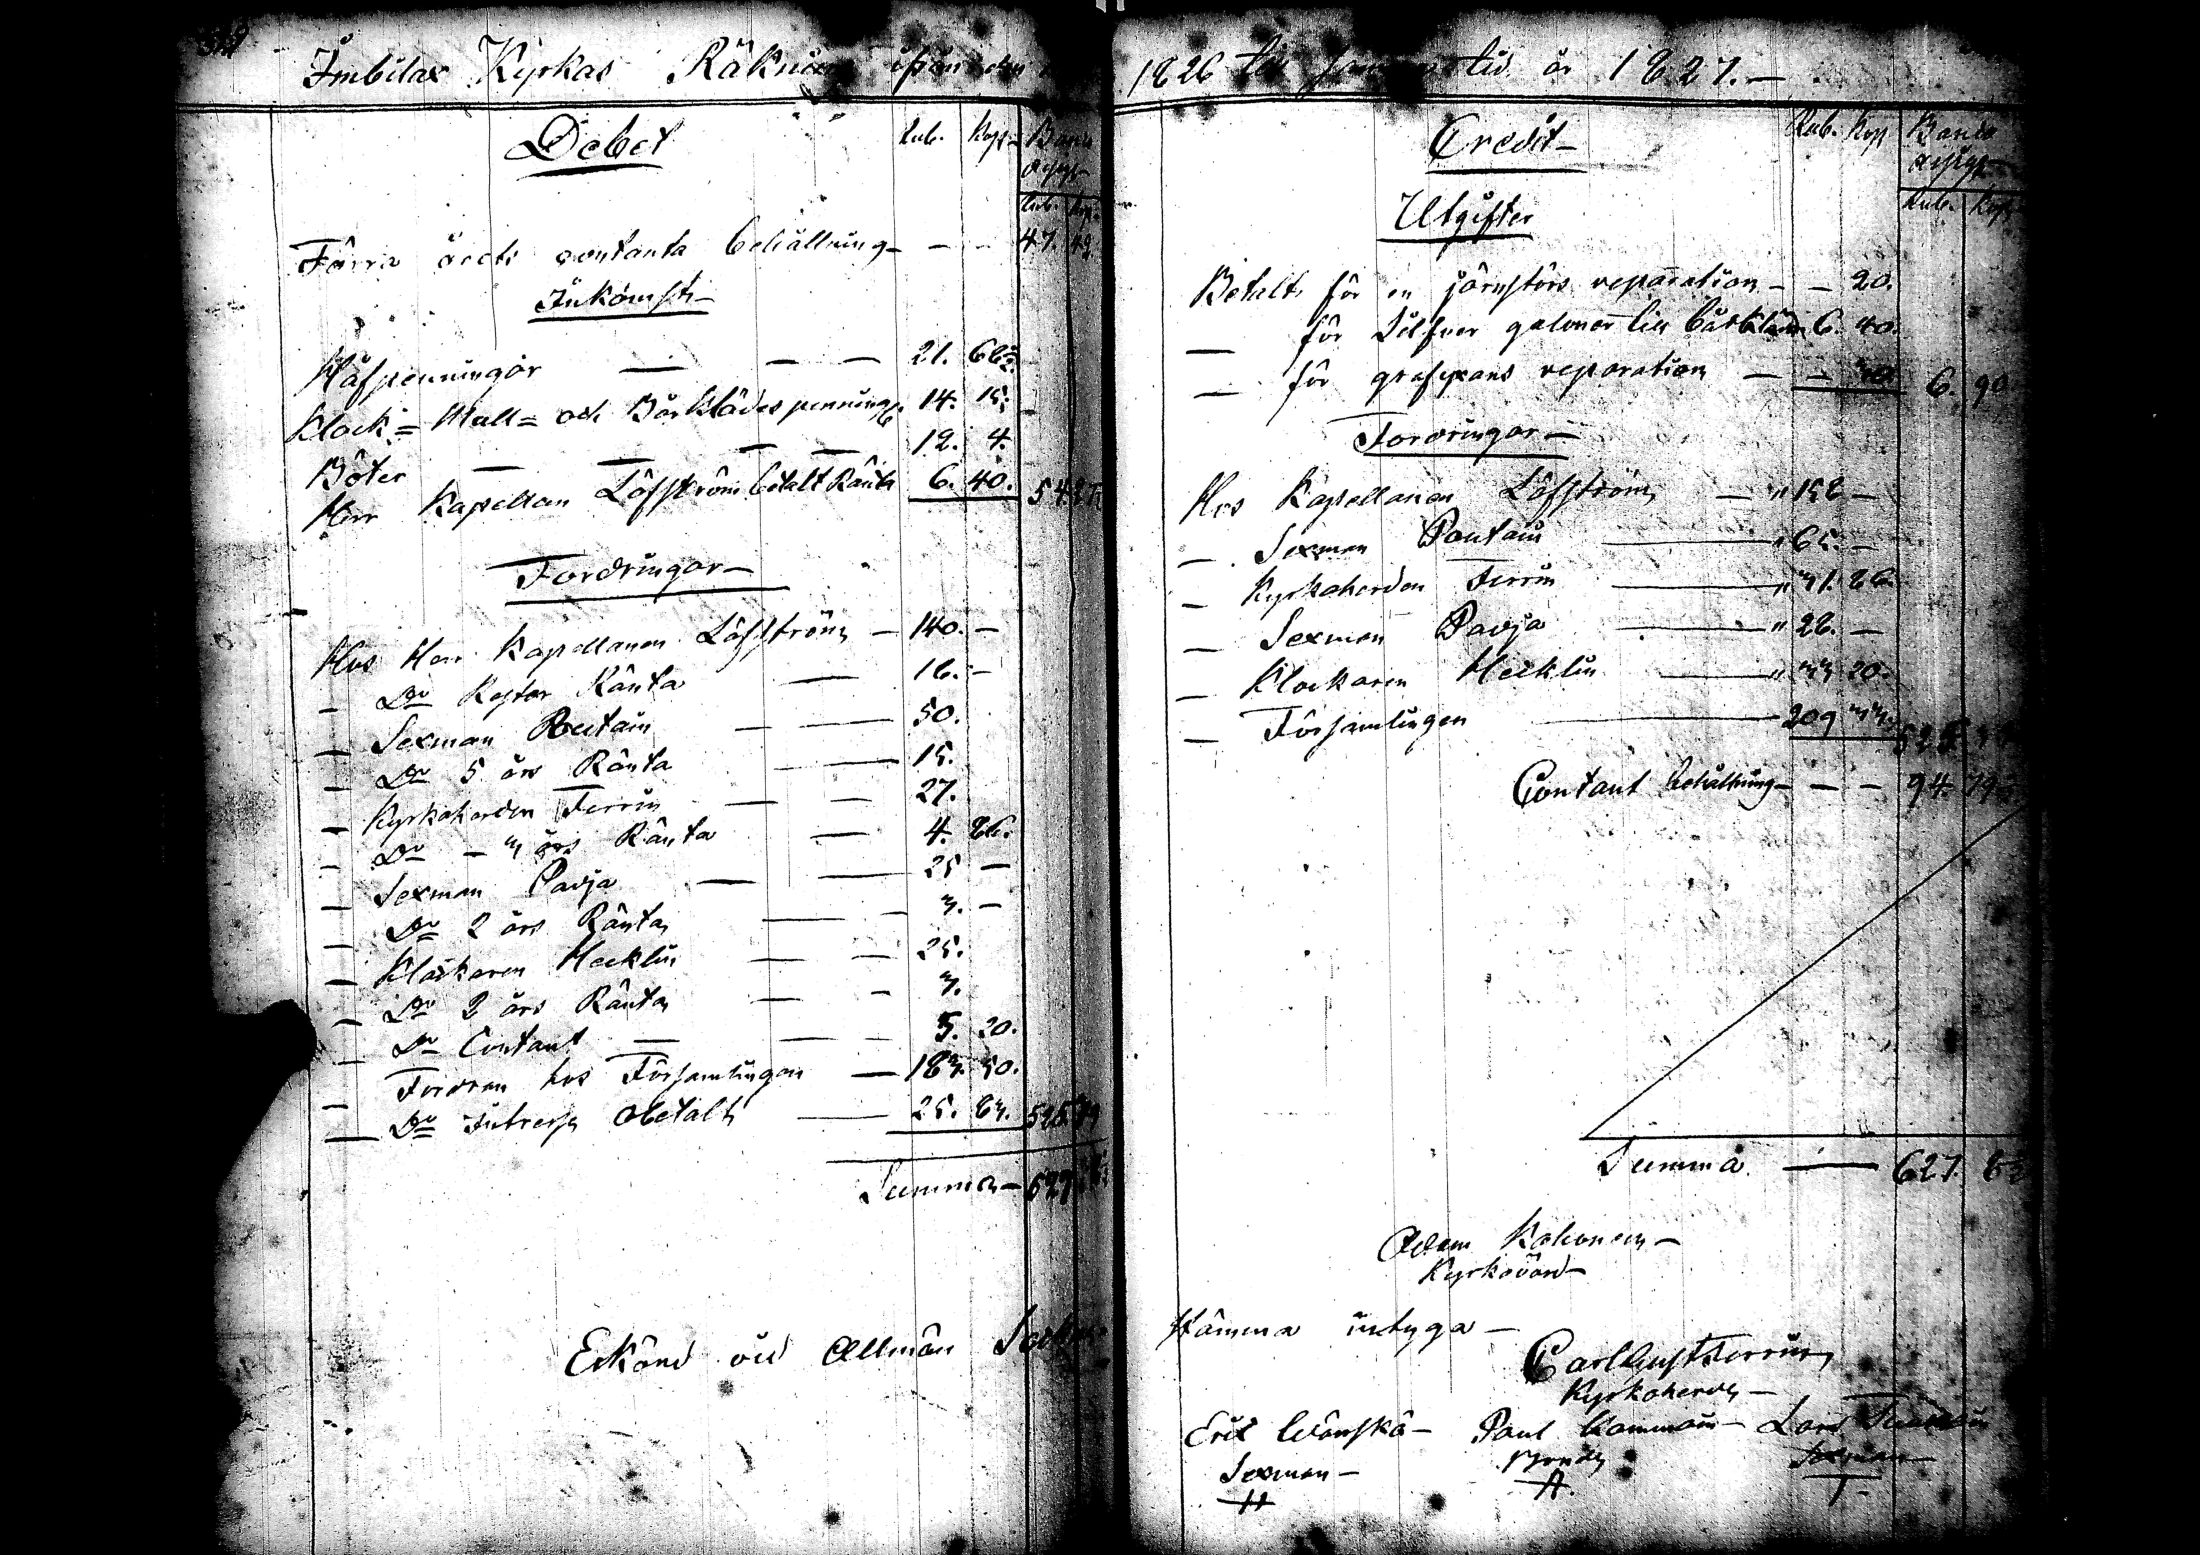 Imbilax Kyrkas Räkning ifrån den
1826 till samma tid år 1827.—
Debet
Rub. Kop. Banco
Rub. Kop.
Förra årets contanta behållning — — 47. 42.
Inkomst—
Håfpenningar — — — 21. 68½.
Klock= Wall= och Bårklädes penning. 14. 15.
Böter — — — — 12. 4.
Herr Kapellan Löfström betalt Ränta 6. 40. 54.
Fordringar—
Hos Herr Kapellanen Löfström — 140. —
— Do Restar Ränta — 16. —
— Sexman — — 50.
— Do 5 års Ränta — 15.
— Kyrkoherden Ferrin — — 27.
— Do — 3 års Ränta — 4. 86.
— Sexman Pavja — — 25 —
— Do 2 års Ränta — — 3. —
— Klockaren Hecklin — — 25.
— Do 2 års Ränta — — 3.
— Do Contant — — — 5. 20.
— Fordran hos Församlingen — 183. 50.
— Do Intresse obetalt — 25. 83. 525.
Summa— 627
Erkänd vid Allmän Sockne
Credit—
Rub. Kop Banco
Rub. Kop
Utgifter
Betalt för en järnstörs reparation — — 20.
— för Silfver galoner till bårkläde 6. 40.
— för grafyxans reparation — — 30 6. 90
Fordringar—
Hos Kapellanen Löfström — " 158 —
— Sexman Pontain — " 65. —
— Kyrkoherden Ferrin — " 31. 86.
— Sexman Pavja — " 28. —
— Klockaren Hecklin — " 33 20.
— Församlingen — 209 33 525.
Contant behållning — — — 94. 79
Summa — 627. 8
Adam Kokonen—
Kyrkovärd—
stämma intyga—
Carl Gust Ferrin
Kyrkoherde—
Erik Wänskä— Paul — Lars
Sexman— Bonde Sexman